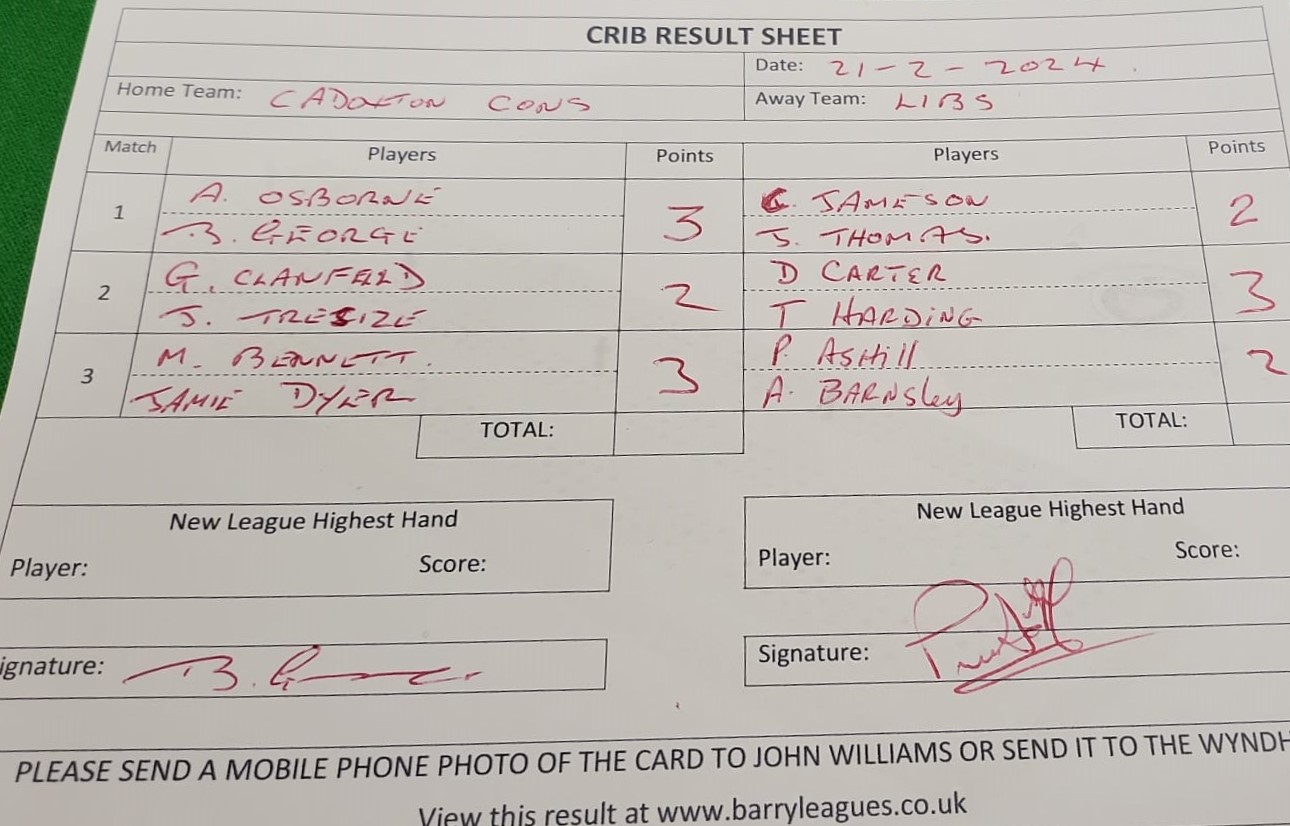 CRIB RESULT SHEET
Date: 21-2-2024.
Home Team: CADOXTON CONS
Away Team: LIBS
Match Players Points Players Points
A. OSBORNE C. JAMESON
1 3 2
B. GEORGE J. THOMAS.
G. CLANFELD D CARTER
2 2 3
J. TRESIZE T HARDING
M. BENNETT. P. ASHill
3 3 2
JAMIE DYER A. BARNSley
TOTAL: TOTAL:
New League Highest Hand New League Highest Hand
Player: Score: Player: Score:
ignature: B. G Signature:
PLEASE SEND A MOBILE PHONE PHOTO OF THE CARD TO JOHN WILLIAMS OR SEND IT TO THE WYNDH
View this result at www.barryleagues.co.uk